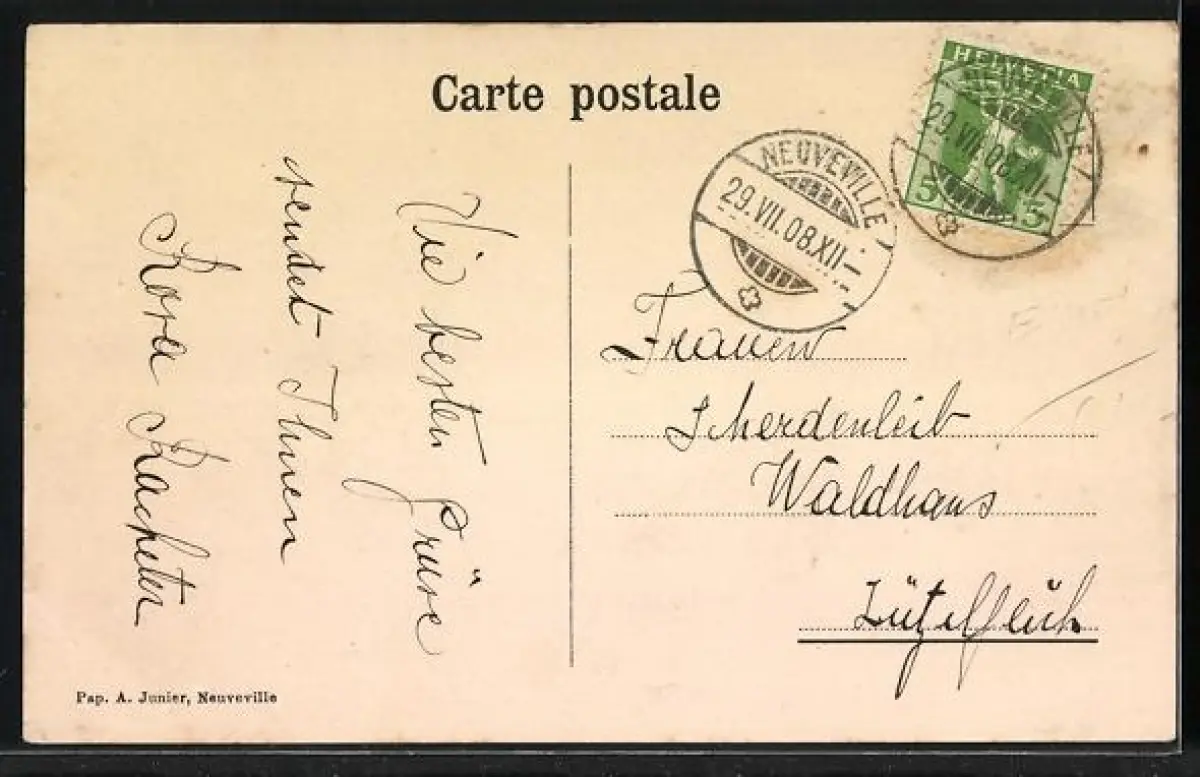 Carte postale
HELVETIA
5 5
NEUVEVILLE
29.VII.08.XII—
NEUVEVILLE
29.VII.08.XII—
Die besten Grüsse
sendet Ihnen
Rosa Racheter
Frauen
Scherdenleib
Waldhaus
Lützelflüh
Pap. A. Junier, Neuveville